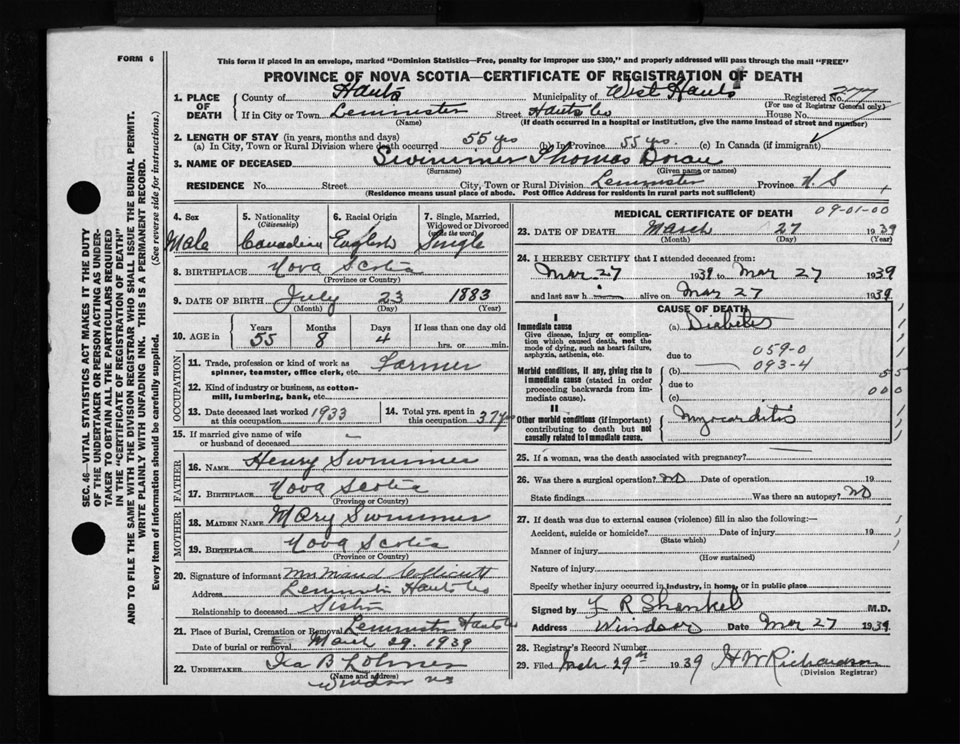 FORM 6
This form if placed in an envelope, marked "Dominion Statistics—Free, penalty for improper use $300," and properly addressed will pass through the mail "FREE"
PROVINCE OF NOVA SCOTIA—CERTIFICATE OF REGISTRATION OF DEATH
1. PLACE OF DEATH
County of Hants Municipality of West Hants Registered No. 277
(For use of Registrar General only)
If in City or Town Leminster Street Hants Co House No.
(Name) (If death occurred in a hospital or institution, give the name instead of street and number)
2. LENGTH OF STAY (in years, months and days)
(a) In City, Town or Rural Division where death occurred 55 yrs (b) In Province 55 yrs. (c) In Canada (if immigrant)
3. NAME OF DECEASED Swimmer Thomas Doran
(Surname) (Given name or names)
RESIDENCE No. Street City, Town or Rural Division Leminster Province N.S
(Residence means usual place of abode. Post Office Address for residents in rural parts not sufficient)
4. Sex Male
5. Nationality (Citizenship) Canadian
6. Racial Origin English
7. Single, Married, Widowed or Divorced (Write the word) Single
8. BIRTHPLACE Nova Scotia
(Province or Country)
9. DATE OF BIRTH July 23 1883
(Month) (Day) (Year)
10. AGE in Years 55 Months 8 Days 4 If less than one day old
hrs. or min.
OCCUPATION
11. Trade, profession or kind of work as spinner, teamster, office clerk, etc. Farmer
12. Kind of industry or business, as cotton-mill, lumbering, bank, etc.
13. Date deceased last worked at this occupation 1933
14. Total yrs. spent in this occupation 37 yrs
15. If married give name of wife or husband of deceased –
FATHER
16. NAME Henry Swimmer
17. BIRTHPLACE Nova Scotia
(Province or Country)
MOTHER
18. MAIDEN NAME Mary Swimmer
19. BIRTHPLACE Nova Scotia
(Province or Country)
20. Signature of informant Mrs Maud
Address Leminster Hants Co
Relationship to deceased Sister
21. Place of Burial, Cremation or Removal Leminster Hants Co
Date of burial or removal March 29. 1939
22. UNDERTAKER Ira B
(Name and address)
Windsor NS
MEDICAL CERTIFICATE OF DEATH 09-01-00
23. DATE OF DEATH March 27 1939
(Month) (Day) (Year)
24. I HEREBY CERTIFY that I attended deceased from:
Mar 27 1939 to Mar 27 1939
and last saw h im alive on Mar 27 1939
CAUSE OF DEATH
I
Immediate cause
Give disease, injury or complication which caused death, not the mode of dying, such as heart failure, asphyxia, asthenia, etc.
(a) Diabetes
due to 059-0
Morbid conditions, if any, giving rise to immediate cause (stated in order proceeding backwards from immediate cause).
(b) 093-4
due to 55
(c) 000
II
Other morbid conditions (if important) contributing to death but not causally related to immediate cause.
Myocarditis
25. If a woman, was the death associated with pregnancy?
26. Was there a surgical operation? NO Date of operation 19
State findings Was there an autopsy? NO
27. If death was due to external causes (violence) fill in also the following:—
Accident, suicide or homicide? Date of injury 19
(State which)
Manner of injury
(How sustained)
Nature of injury
Specify whether injury occurred in industry, in home, or in public place
Signed by F R Shankel M.D.
Address Windsor Date Mar 27 1939
28. Registrar's Record Number
29. Filed Mch 29th 1939 H W Richardson
(Division Registrar)
SEC. 46—VITAL STATISTICS ACT MAKES IT THE DUTY
OF THE UNDERTAKER OR PERSON ACTING AS UNDER-
TAKER TO OBTAIN ALL THE PARTICULARS REQUIRED
IN THE "CERTIFICATE OF REGISTRATION OF DEATH"
AND TO FILE THE SAME WITH THE DIVISION REGISTRAR WHO SHALL ISSUE THE BURIAL PERMIT.
WRITE PLAINLY WITH UNFADING INK. THIS IS A PERMANENT RECORD.
Every item of information should be carefully supplied. (See reverse side for instructions.)